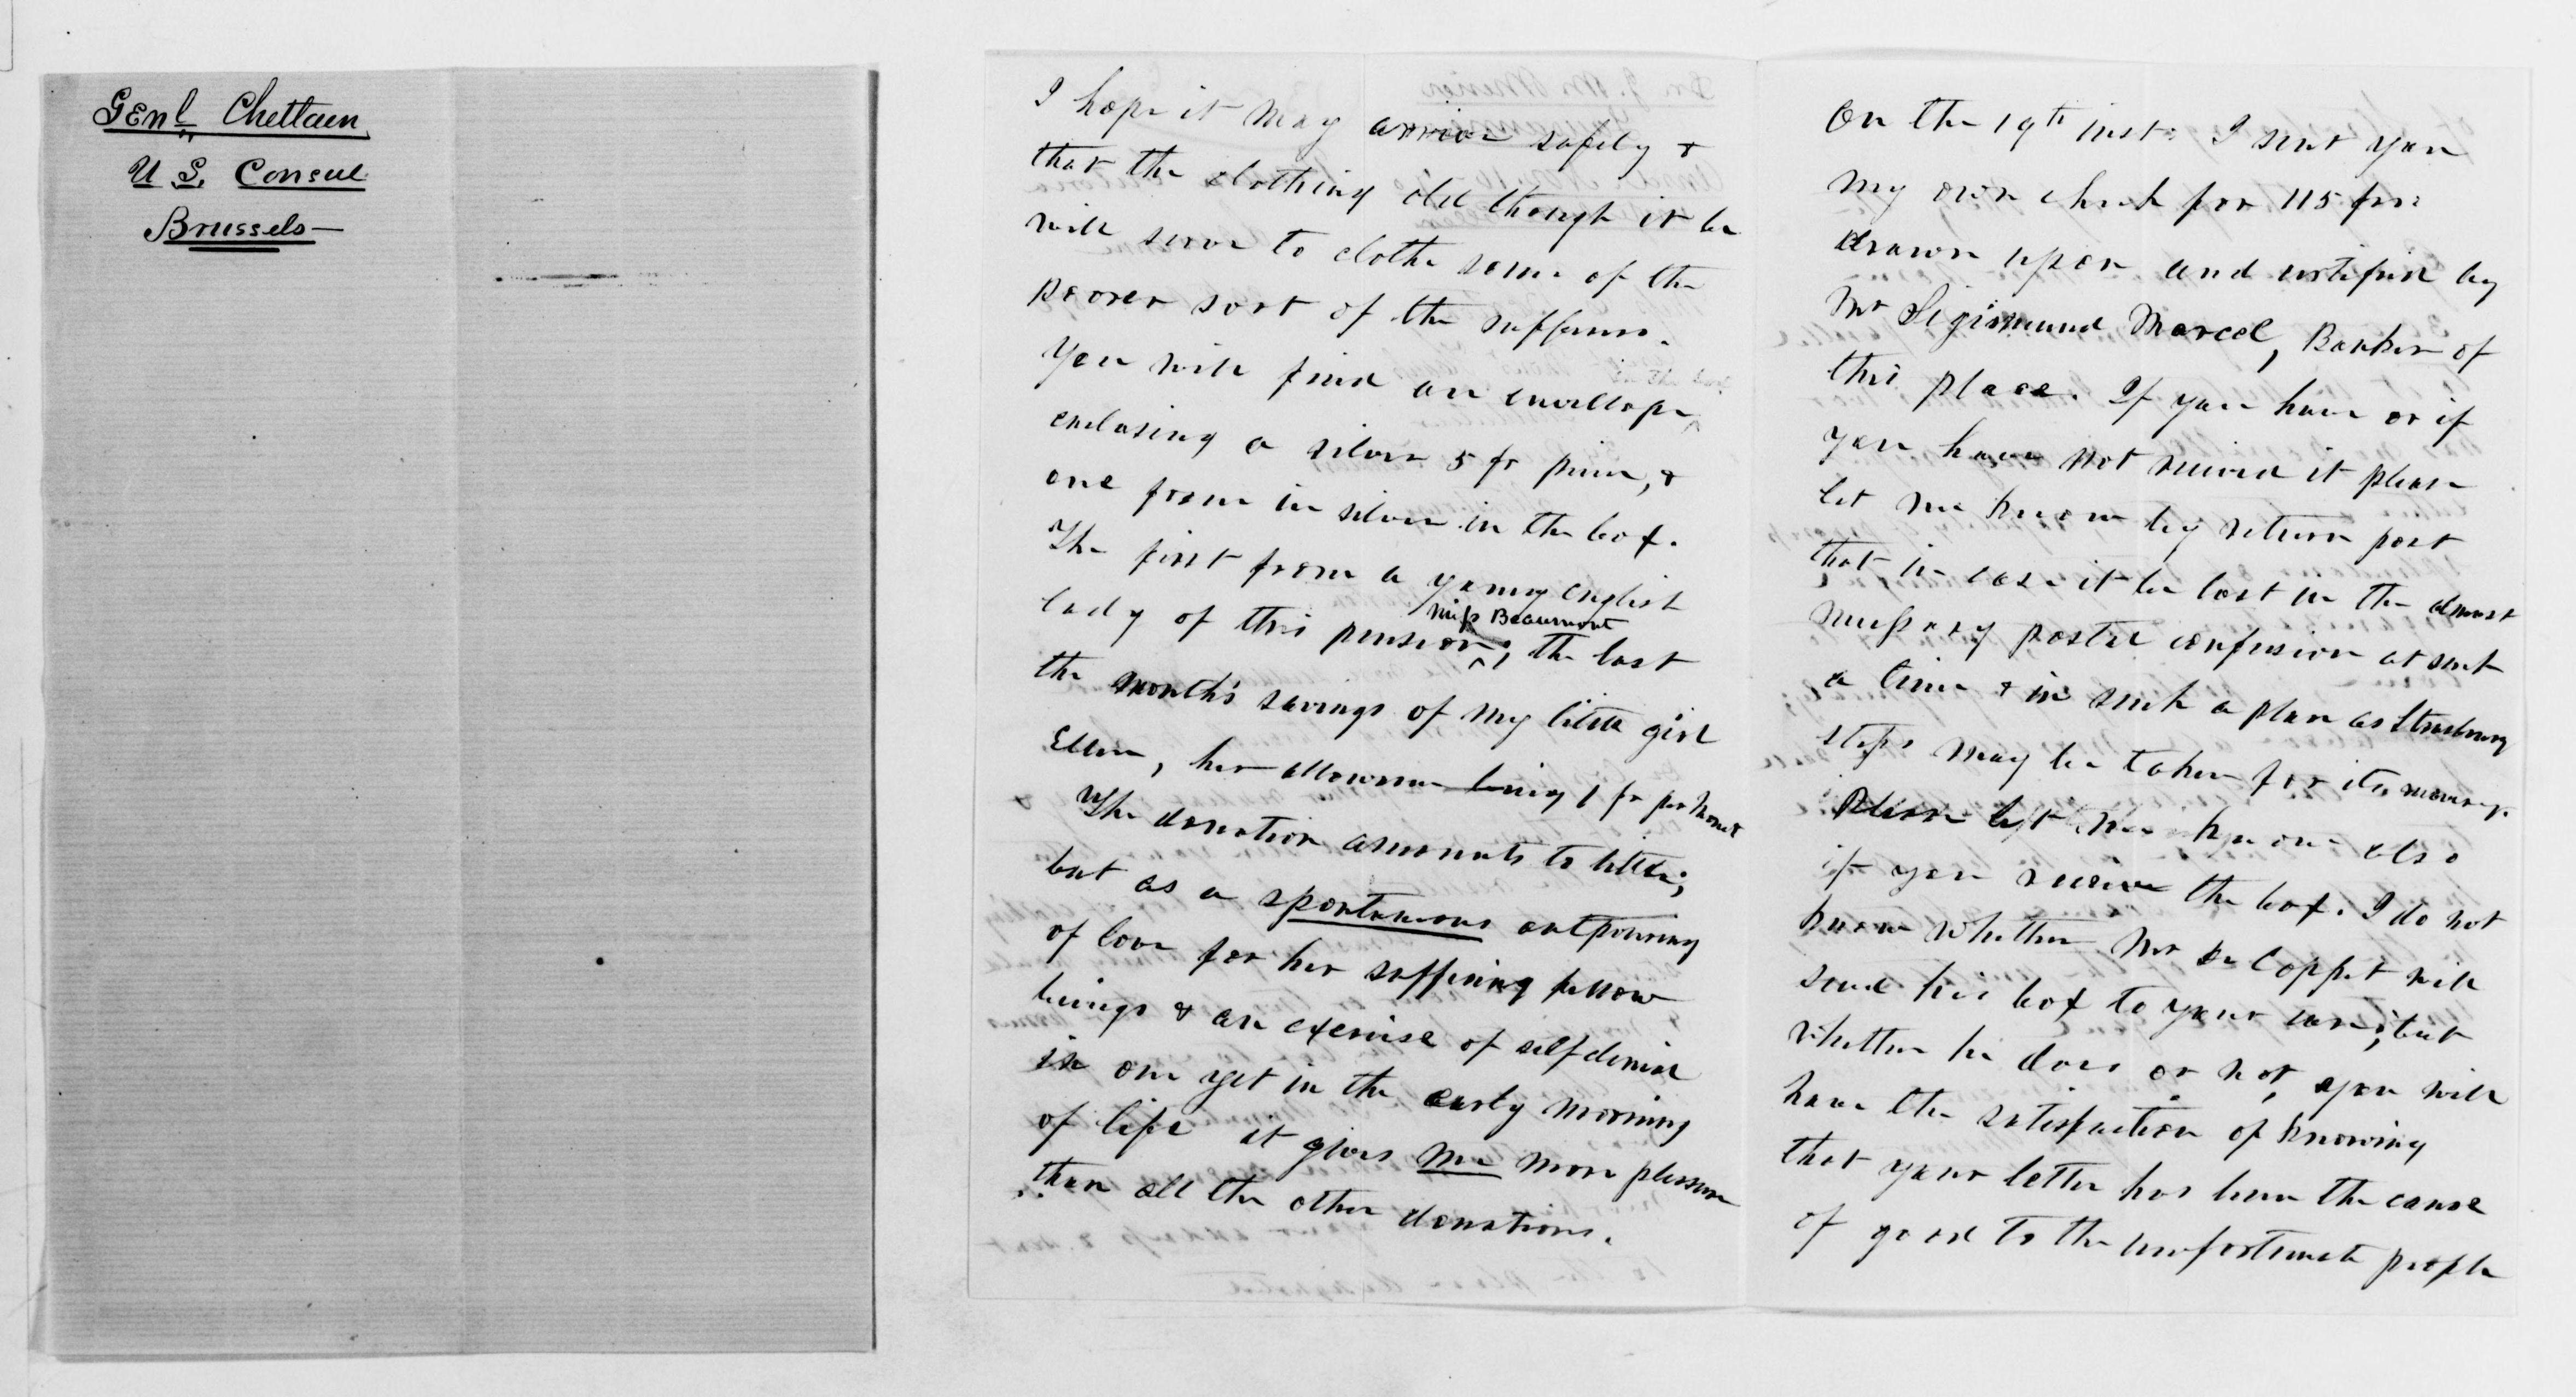 Genl Chetlain
U S. Consul
Brussels—
I hope it may arrive safely &
that the clothing old though it be
will serve to clothe some of the
poorer sort of the sufferers.
You will find an envellope
in the box
enclosing a silver 5 fr piece, &
one franc in silver in the box.
The first from a young english
lady of this pension, Miss Beaumont; the last
the month's savings of my little girl
Ellen, her allowance being 1 fr per month
The donation amounts to little;
but as a spontaneous outpouring
of love for her suffering fellow
beings & an exercise of self denial
in one yet in the early morning
of life it gives me more pleasure
than all the other donations.
On the 19th inst: I sent you
my own check for 115 frs:
drawn upon and certified by
Mr Sigismund Marcel, Banker of
this place. If you have or if
you have not received it please
let me know by return post
that in case it be lost in the almost
necessary postal confusion at such
a time & in such a place as Strasbourg
steps may be taken for its recovery.
Please let me know also
if you receive the box. I do not
know whether Mr de Coppet will
send his box to your care; but
whether he does or not, you will
have the satisfaction of knowing
that your letter has been the cause
of good to the unfortunate people